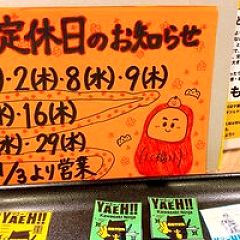 定休日のお知らせ
)・2(木)・8(水)・9(木)
木)・16(木)
水)・29(木)
1/3より営業
YAEH!!
Kawasaki Ninja
YAEH!!
Kawasaki Ninja
YAEH!!